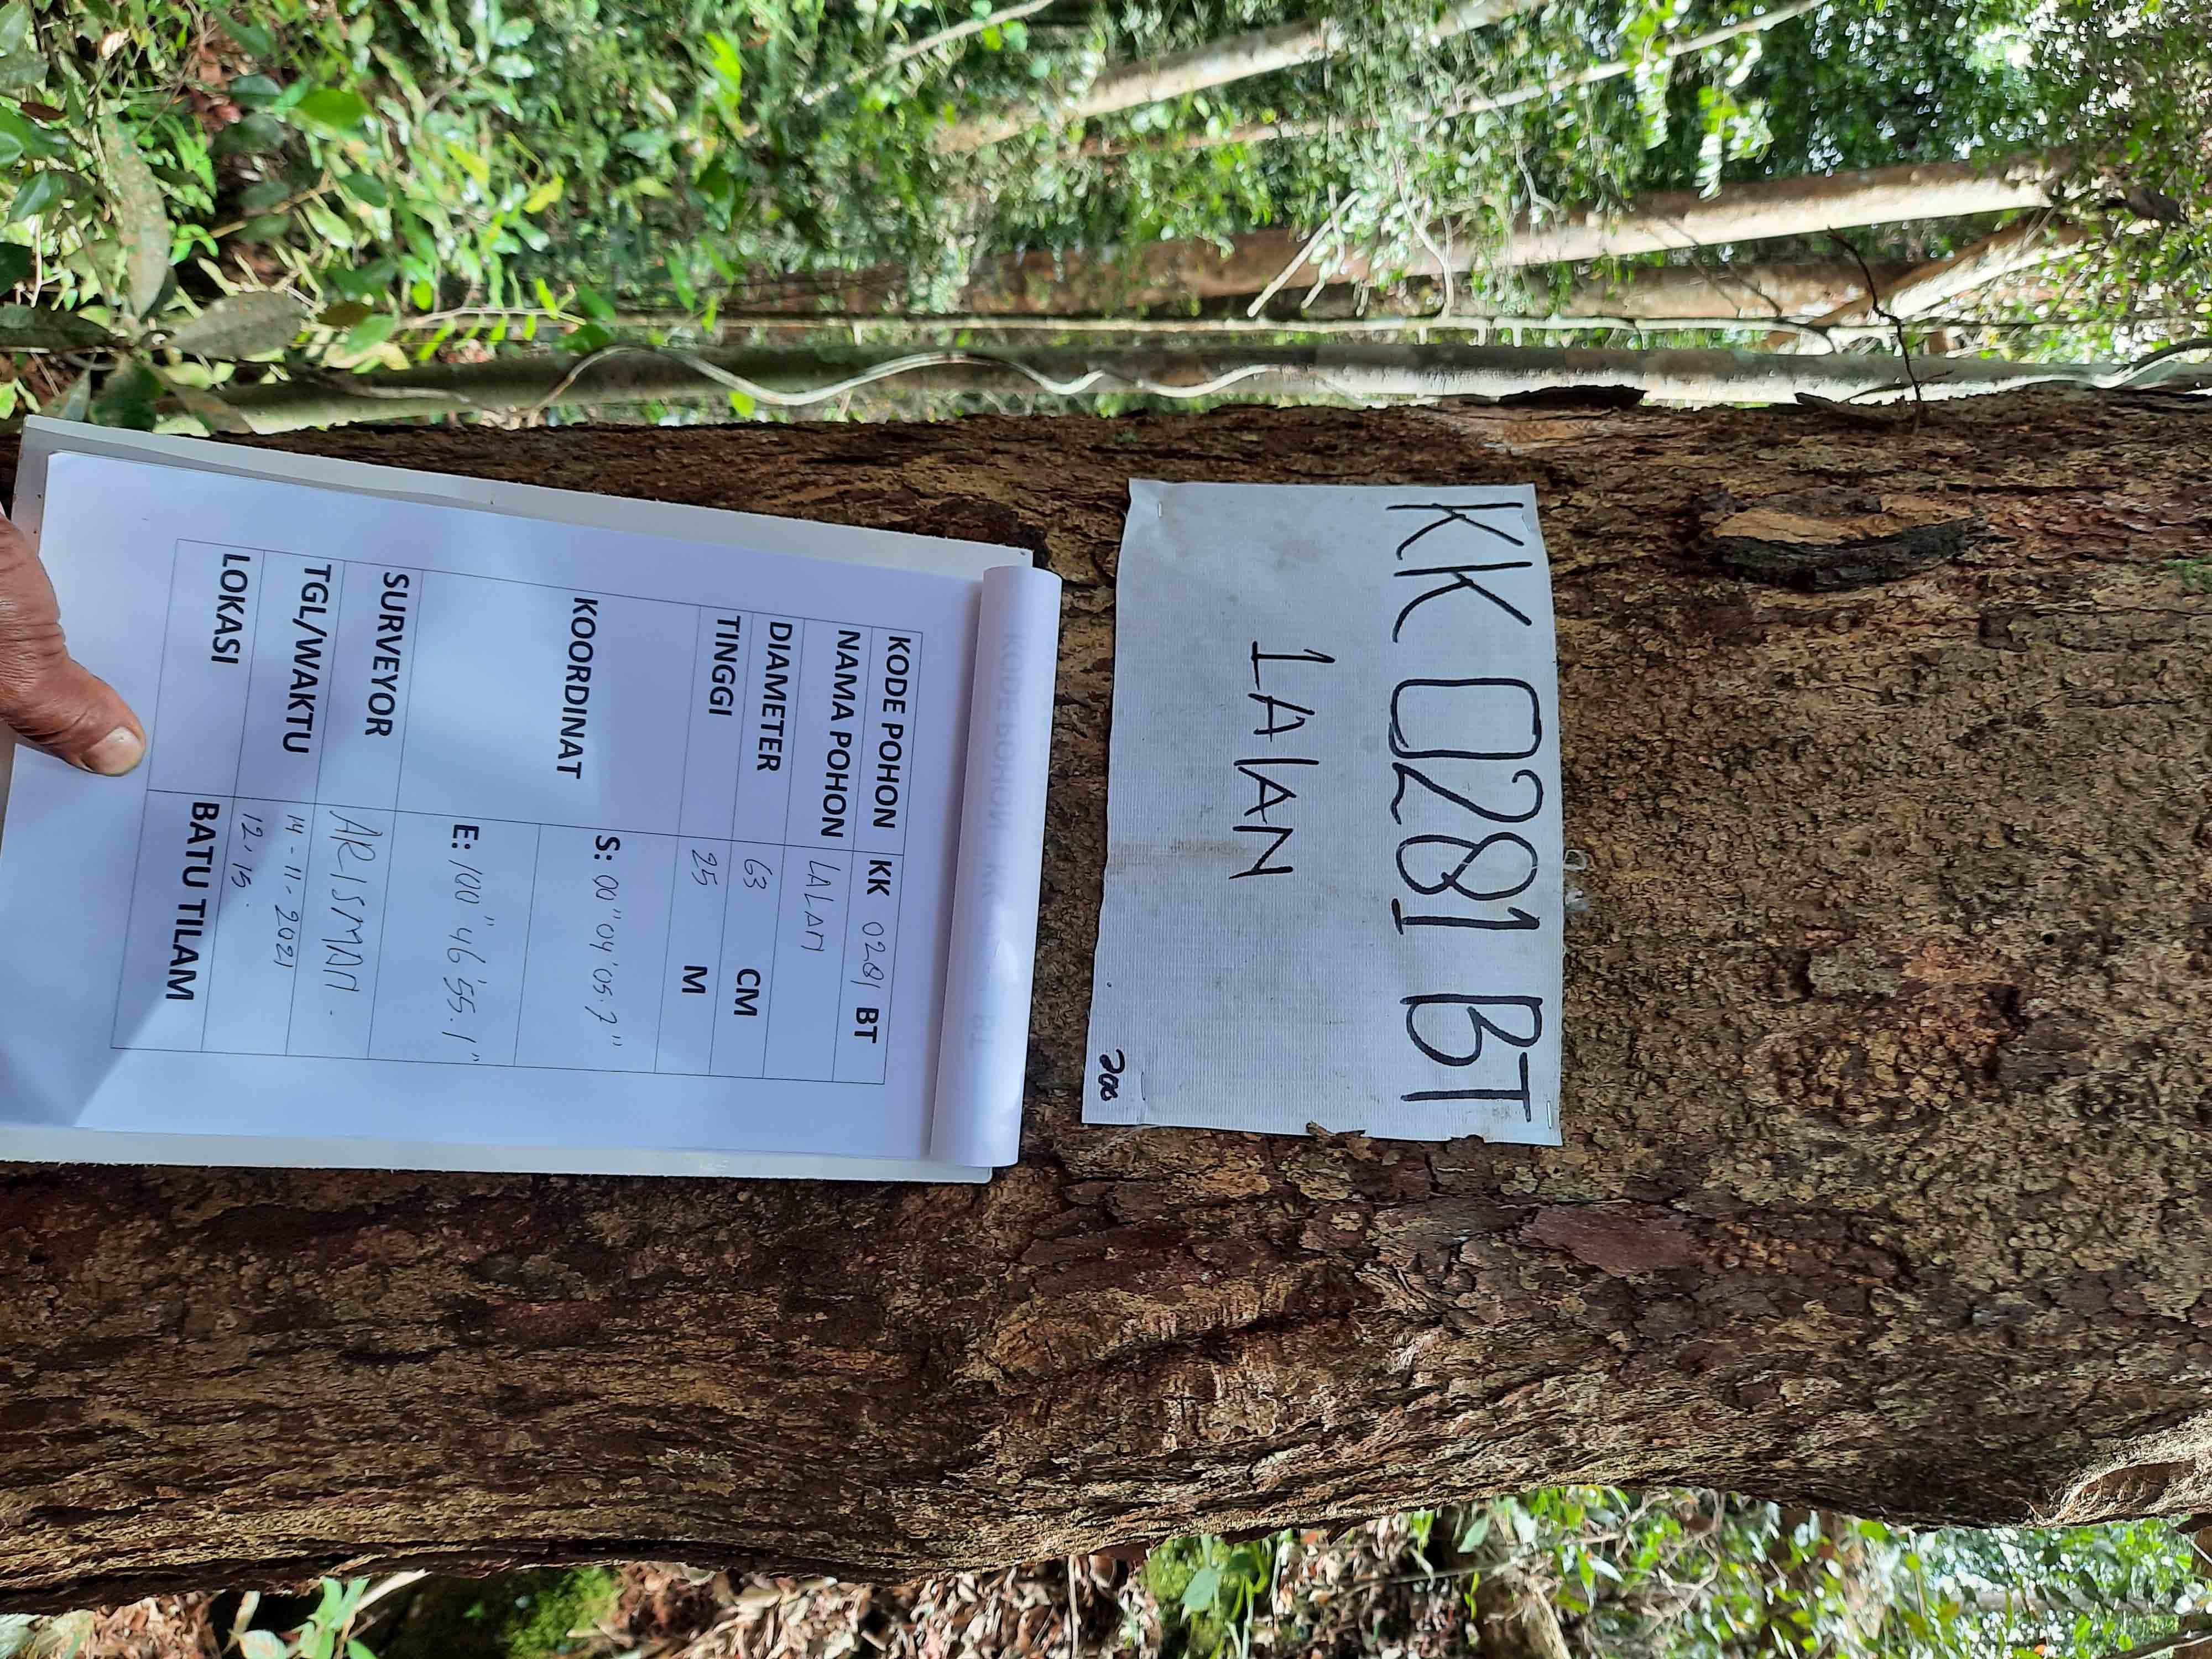 KK 0281 BT
LALAN
200
KODE POHON KK 0281 BT
NAMA POHON LALAN
DIAMETER 63 CM
TINGGI 25 M
KOORDINAT S: 00"04'05.7"
E: 100"46'55.1"
SURVEYOR ARISMAN.
TGL/WAKTU 14-11-2021
12.15.
LOKASI BATU TILAM